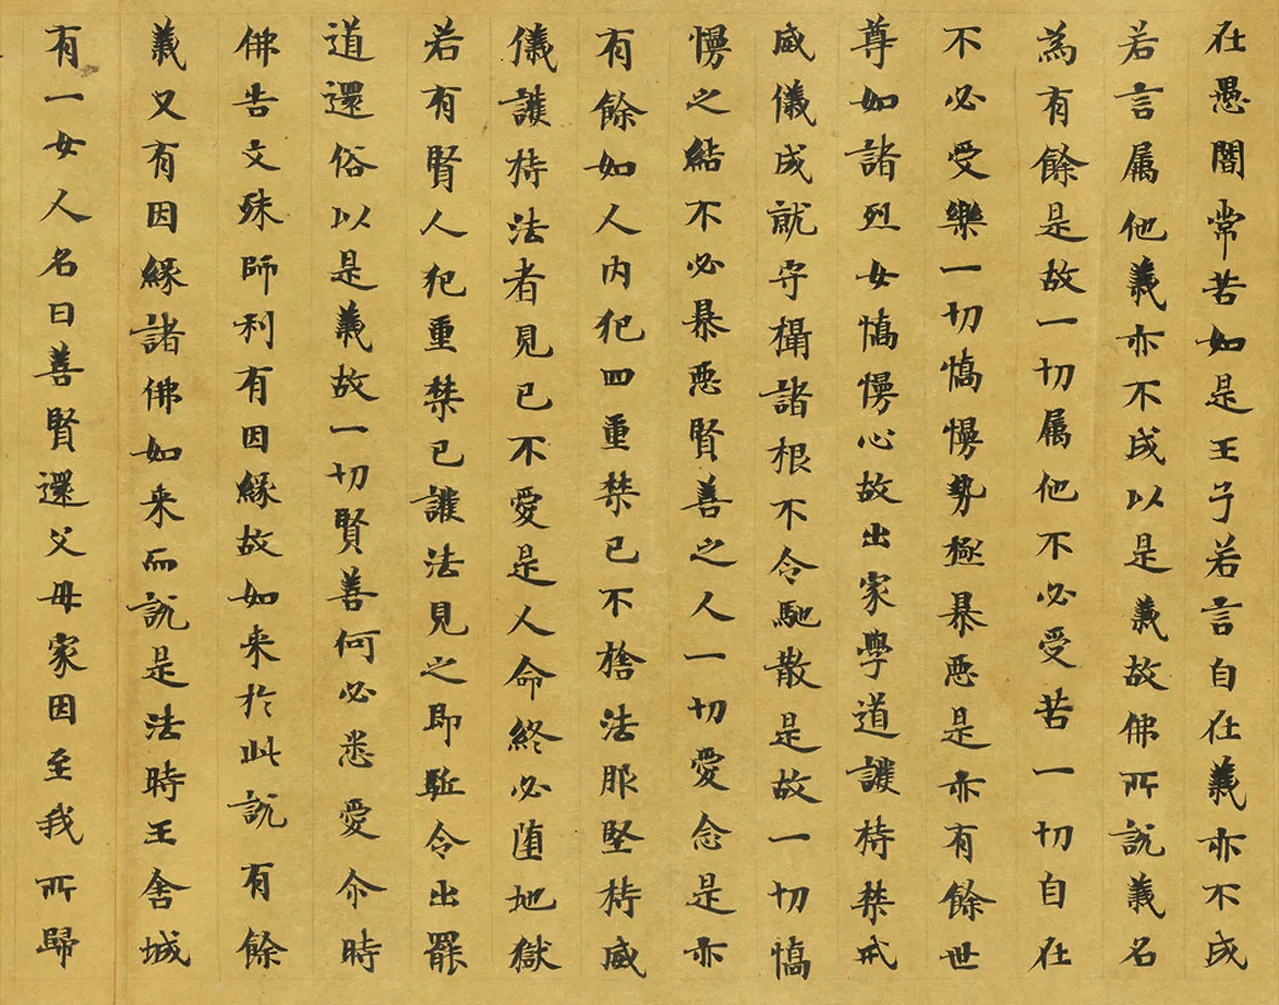 在愚闇常苦如是王子若言自在義亦不成
若言属他義亦不成以是義故佛所說義名
為有餘是故一切属他不必受苦一切自在
不必受樂一切憍慢勢極暴惡是亦有餘世
尊如諸烈女憍慢心故出家學道護持禁戒
威儀成就守攝諸根不令馳散是故一切憍
慢之結不必暴惡賢善之人一切愛念是亦
有餘如人内犯四重禁已不捨法服堅持威
儀護持法者見已不愛是人命終必堕地獄
若有賢人犯重禁已護法見之即駈令出罷
道還俗以是義故一切賢善何必悉愛尒時
佛告文殊師利有因緣故如来於此說有餘
義又有因緣諸佛如来而說是法時王舍城
有一女人名曰善賢還父母家因至我所歸